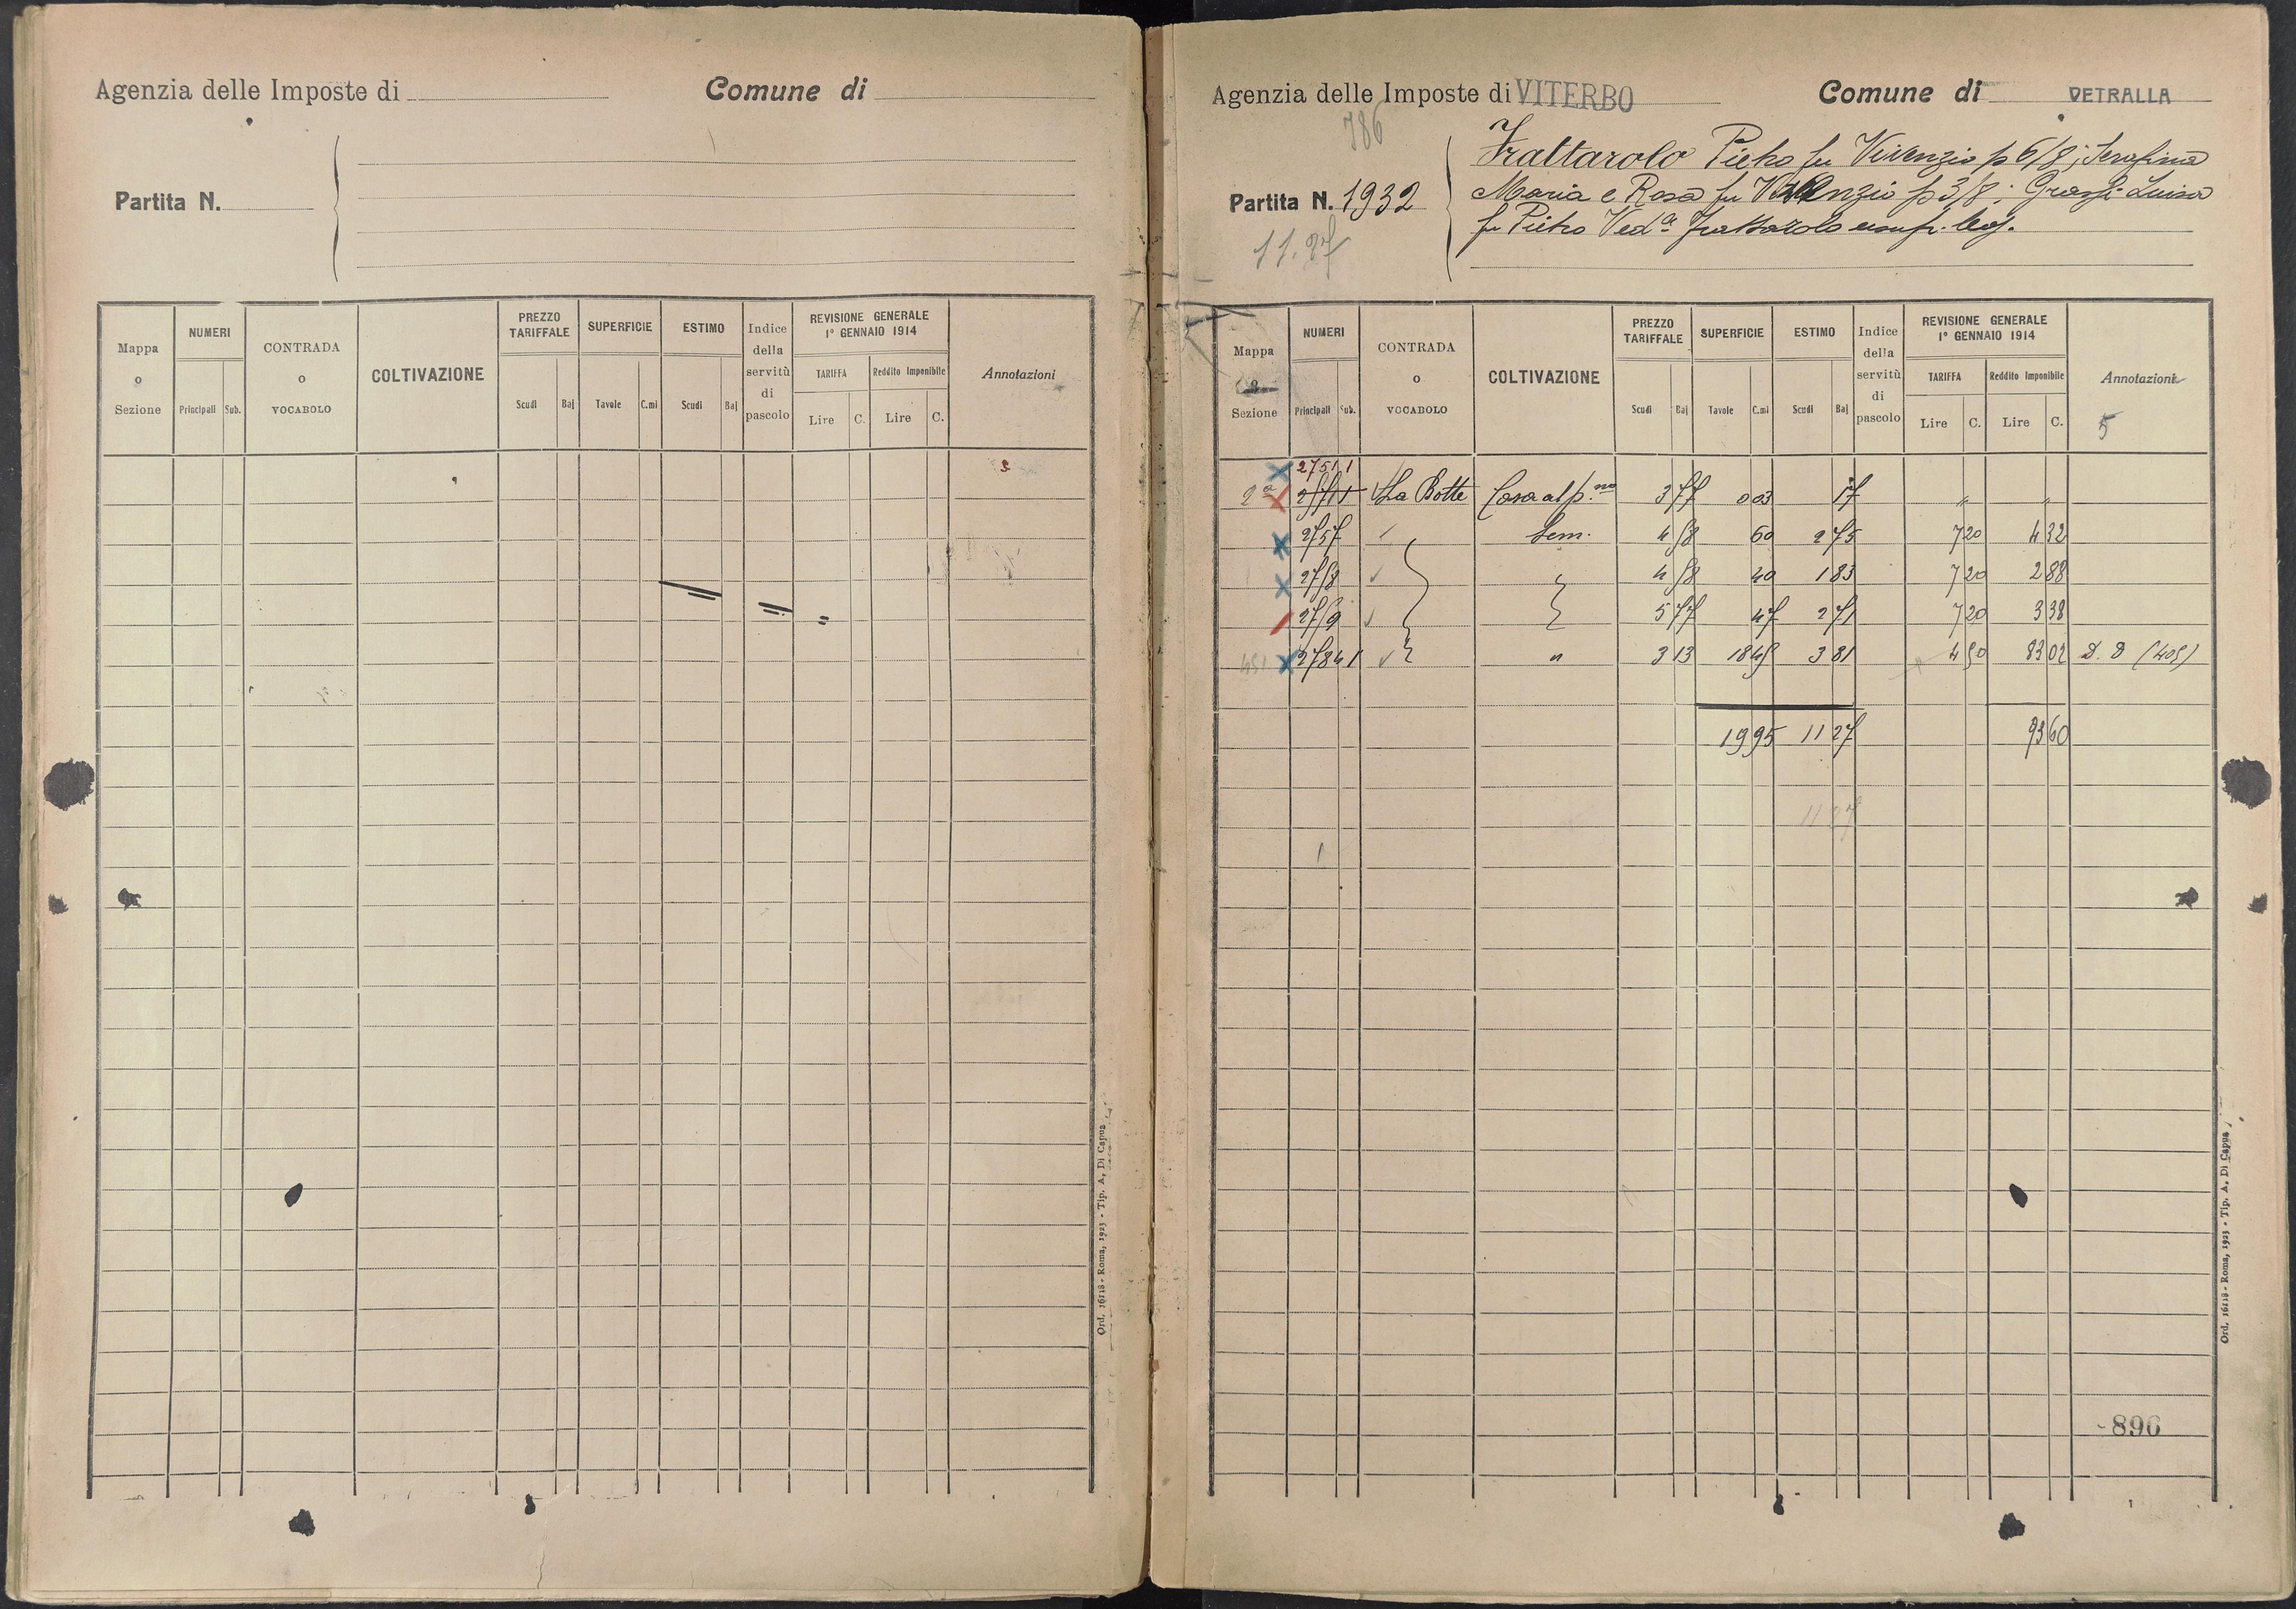 Agenzia delle Imposte di
Comune di
Partita N.
Mappa o Sezione
NUMERI
Principali
Sub.
CONTRADA o VOCABOLO
COLTIVAZIONE
PREZZO TARIFFALE
Scudi
Baj
SUPERFICIE
Tavole
C.mi
ESTIMO
Scudi
Baj
Indice della servitù di pascolo
REVISIONE GENERALE 1° GENNAIO 1914
TARIFFA
Lire
C.
Reddito Imponibile
Lire
C.
Annotazioni
Ord. 16118 - Roma, 1923 - Tip. A. Di Capua
Agenzia delle Imposte di VITERBO
Comune di VETRALLA
786
Partita N. 1932
11.27
Frattarolo Pietro fu Vivenzio p 6/8; Serafina
Maria e Rosa fu Vivenzio p 3/8; Grassi Luisa
fu Pietro Ved.a Frattarolo usufr. leg.
Mappa o Sezione
NUMERI
Principali
Sub.
CONTRADA o VOCABOLO
COLTIVAZIONE
PREZZO TARIFFALE
Scudi
Baj
SUPERFICIE
Tavole
C.mi
ESTIMO
Scudi
Baj
Indice della servitù di pascolo
REVISIONE GENERALE 1° GENNAIO 1914
TARIFFA
Lire
C.
Reddito Imponibile
Lire
C.
Annotazioni
5
2751 1
2a La Botte Casa al p.no 3 77 0 03 17 " "
2757 Sem. 4 58 60 2 75 7 20 4 32
4 58 40 1 83 7 20 2 88
5 77 47 2 71 7 20 3 38
2784 1 " 3 13 18 45 3 81 4 50 83 02
19 95 11 27 93 60
11 27
896
Ord. 16118 - Roma, 1923 - Tip. A. Di Capua